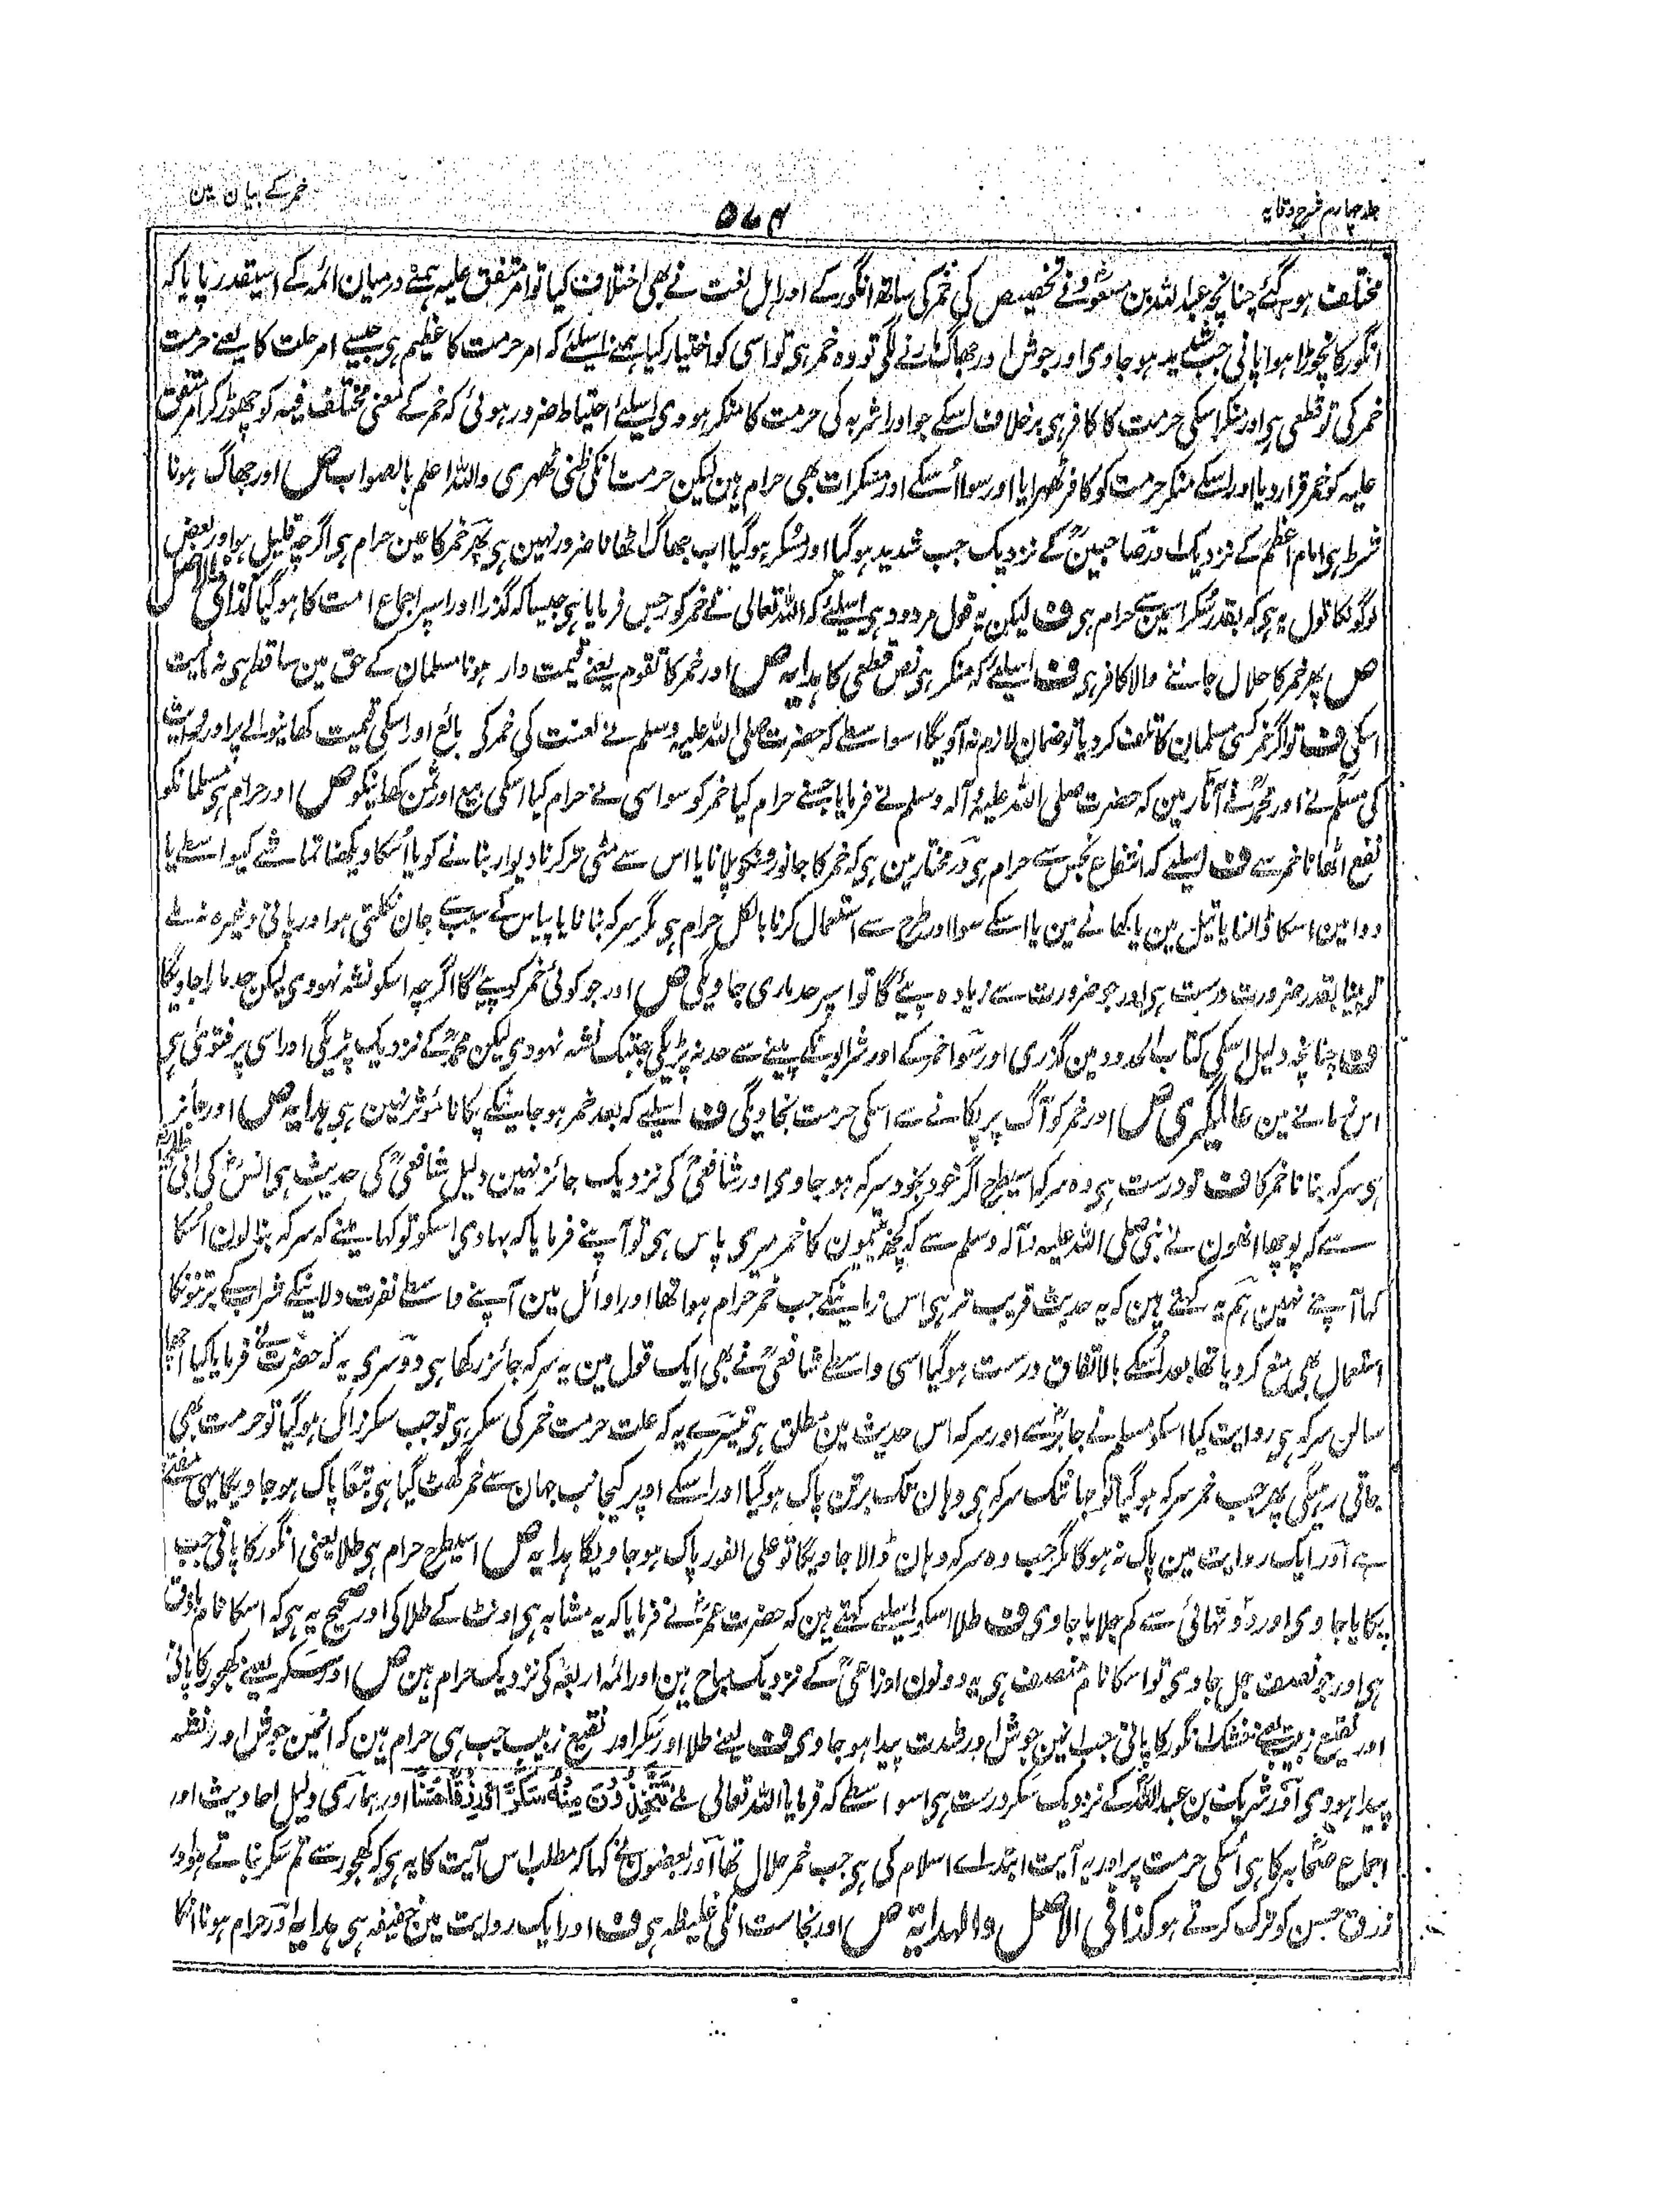 جلد چہارم شرح وقایہ
۵۷۴
خمر کے بیان مین
مختلف ہو گئے چنانچہ عبد اللہ بن مسعودؓ نے تخصیص کی خمر کی ساتھ انگور کے اور اہل لغت نے بھی اختلاف کیا تو امر متفق علیہ ہمنے درمیان ائمہ کے اسیقدر پایا کہ
انگور کا نچوڑا ہوا پانی جب شدید ہو جاوی اور جوش اور جھاگ مارنے لگی تو وہ خمر ہی تو اسی کو اختیار کیا ہمنے اسلیئے کہ امر حرمت کا عظیم ہی جیسے امر حلت کا یعنے حرمت
خمر کی تو قطعی ہی اور منکر اسکی حرمت کا کافر ہی برخلاف اسکے جو اور اشربہ کی حرمت کا منکر ہووی اسلیئے احتیاط ضرور ہوئی کہ خمر کے معنی مختلف فیہ کو چھوڑ کر امر متفق
علیہ کو خمر قرار دیا اور اسکے منکر حرمت کو کافر ٹھہرایا اور سوا اسکے اور مسکرات بھی حرام ہین لیکن حرمت انکی ظنی ٹھہری واللہ اعلم بالصواب ص اور جھاگ ہونا
شرط ہی امام اعظمؒ کے نزدیک اور صاحبینؒ کے نزدیک جب شدید ہو گیا اور مسکر ہو گیا اب جھاگ اٹھانا ضرور نہین ہی پھر خمر کا عین حرام ہی اگرچہ قلیل ہو اور بعض
لوگونکا قول یہ ہی کہ بقدر سکر اسمین سے حرام ہی ف لیکن یہ قول مردود ہی اسلیئے کہ اللہ تعالی نے خمر کو رجس فرمایا ہی جیسا کہ گذرا اور اسپر اجماع امت کا ہو گیا کذا فی الاصل
ص پھر خمر کا حلال جاننے والا کافر ہی ف اسلیئے کہ منکر ہی نص قطعی کا ہدایہ ص اور خمر کا تقوم یعنے قیمت دار ہونا مسلمان کے حق مین ساقط ہی نہ مالیت
اسکی ف تو اگر خمر کسی مسلمان کا تلف کر دیا تو ضمان لازم نہ آویگا اسواسطے کہ حضرت صلی اللہ علیہ وسلم نے لعنت کی خمر کی بائع اور اسکی قیمت کھانیوالے پر اور حدیث
کی مسلم نے اور محمدؒ نے آثار مین کہ حضرت صلی اللہ علیہ وآلہ وسلم نے فرمایا جسنے حرام کیا خمر کو سو اسی نے حرام کیا اسکی بیع اور ثمن کھانیکو ص اور حرام ہی مسلمانکو
نفع اٹھانا خمر سے ف اسلیئے کہ انتفاع نجس سے حرام ہی در مختار مین ہی کہ خمر کا جانورونکو پلانا یا اس سے مٹی تر کرنا دیوار بنانے کو یا اسکا دیکھنا تماشے کیواسطے یا
دوا مین اسکا ڈالنا یا تیل مین یا کھانے مین یا اسکے سوا اور طرح سے استعمال کرنا بالکل حرام ہی مگر سرکہ بنانا یا پیاس کے سبب سے جان نکلتی ہو اور پانی وغیرہ نہ ملے
تو پینا بقدر ضرورت درست ہی اور جو ضرورت سے زیادہ پیئے گا تو اسپر حد ماری جاویگی ص اور جو کوئی خمر کو پیئے گا اگرچہ اسکو نشہ نہووی لیکن حد مارا جاویگا
ف چنانچہ دلیل اسکی کتاب الحدود مین گذری اور سوا خمر کے اور شرابونکے پینے سے حد نہ پڑیگی جبتک نشہ نہووی لیکن محمدؒ کے نزدیک پڑیگی اور اسی پر فتوی ہی
اس زمانے مین عالمگیری ص اور خمر کو آگ پر پکانے سے اسکی حرمت نجاویگی ف اسلیے کہ بعد خمر ہو جانیکے پکانا مؤثر نہین ہی ہدایہ ص اور جائز
ہی سرکہ بنانا خمر کا ف تو درست ہی وہ سرکہ اسیطرح اگر خود بخود سرکہ ہو جاوی اور شافعیؒ کی نزدیک جائز نہین دلیل شافعیؒ کی حدیث ہی انسؓ کی ابی طلحہؓ
سے کہ پوچھا انھون نے نبی صلی اللہ علیہ وآلہ وسلم سے کہ کچھ یتیمون کا خمر میری پاس ہی تو آپنے فرمایا کہ بہا دی اسکو تو کہا مینے کہ سرکہ بنا لون اسکا
کہا آپنے نہین ہم یہ کہتے ہین کہ یہ حدیث قریب تر ہی اس زمانیکے جب خمر حرام ہوا تھا اور اوائل مین آپنے واسطے نفرت دلانیکے شراب کے برتنونکا
استعمال بھی منع کر دیا تھا بعد اسکے بالاتفاق درست ہو گیا اسی واسطے شافعیؒ نے بھی ایک قول مین یہ سرکہ جائز رکھا ہی دوسری یہ کہ حضرتؐ نے فرمایا کیا اچھا
سالن سرکہ ہی روایت کیا اسکو مسلم نے جابرؓ سے اور سرکہ اس حدیث مین مطلق ہی تیسرے یہ کہ علت حرمت خمر کی سکر ہی تو جب سکر زائل ہو گیا تو حرمت بھی
جاتی رہیگی پھر جب خمر سرکہ ہو گیا تو جہانتک سرکہ ہی وہان تک برتن پاک ہو گیا اور اسکے اوپر کیجانب جہان سے خمر گھٹ گیا ہی تبعًا پاک ہو جاویگا یہی مفتی بہ
ہے اور ایک روایت مین پاک نہ ہوگا مگر جب وہ سرکہ وہان ڈالا جاویگا تو علی الفور پاک ہو جاویگا ہدایہ ص اسیطرح حرام ہی طلا یعنی انگور کا پانی جب
پکایا جاوی اور دو تہائی سے کم جلایا جاوی ف طلا اسکو اسلیے کہتے ہین کہ حضرت عمرؓ نے فرمایا کہ یہ مشابہ ہی اونٹ کے طلا کی اور صحیح یہ ہی کہ اسکا نام باذق
ہی اور جو نصف جل جاوی تو اسکا نام منصف ہی یہ دونون اوزاعیؒ کے نزدیک مباح ہین اور ائمہ اربعہ کی نزدیک حرام ہین ص اور سکر یعنے کھجور کا پانی
اور نقیع زبیب یعنے خشک انگور کا پانی جب انمین جوش اور شدت پیدا ہو جاوی ف یعنے طلا اور سکر اور نقیع زبیب جب ہی حرام ہین کہ انمین جوش اور نشہ
پیدا ہووی اور شریک بن عبداللہ کے نزدیک سکر درست ہی اسواسطے کہ فرمایا اللہ تعالی نے تَتَّخِذُوْنَ مِنْهُ سَكَرًا وَّرِزْقًا حَسَنًا اور ہماری دلیل احادیث اور
اجماع صحابہ کا ہی اسکی حرمت پر اور یہ آیت ابتدای اسلام کی ہی جب خمر حلال تھا اور بعضون نے کہا کہ مطلب اس آیت کا یہ ہی کہ کھجور سے تم سکر بناتے ہو اور
رزق حسن کو ترک کرتے ہو کذا فی الاصل والہدایۃ ص اور نجاست انکی غلیظہ ہی ف اور ایک روایت مین خفیفہ ہی ہدایہ اور حرام ہونا انکا